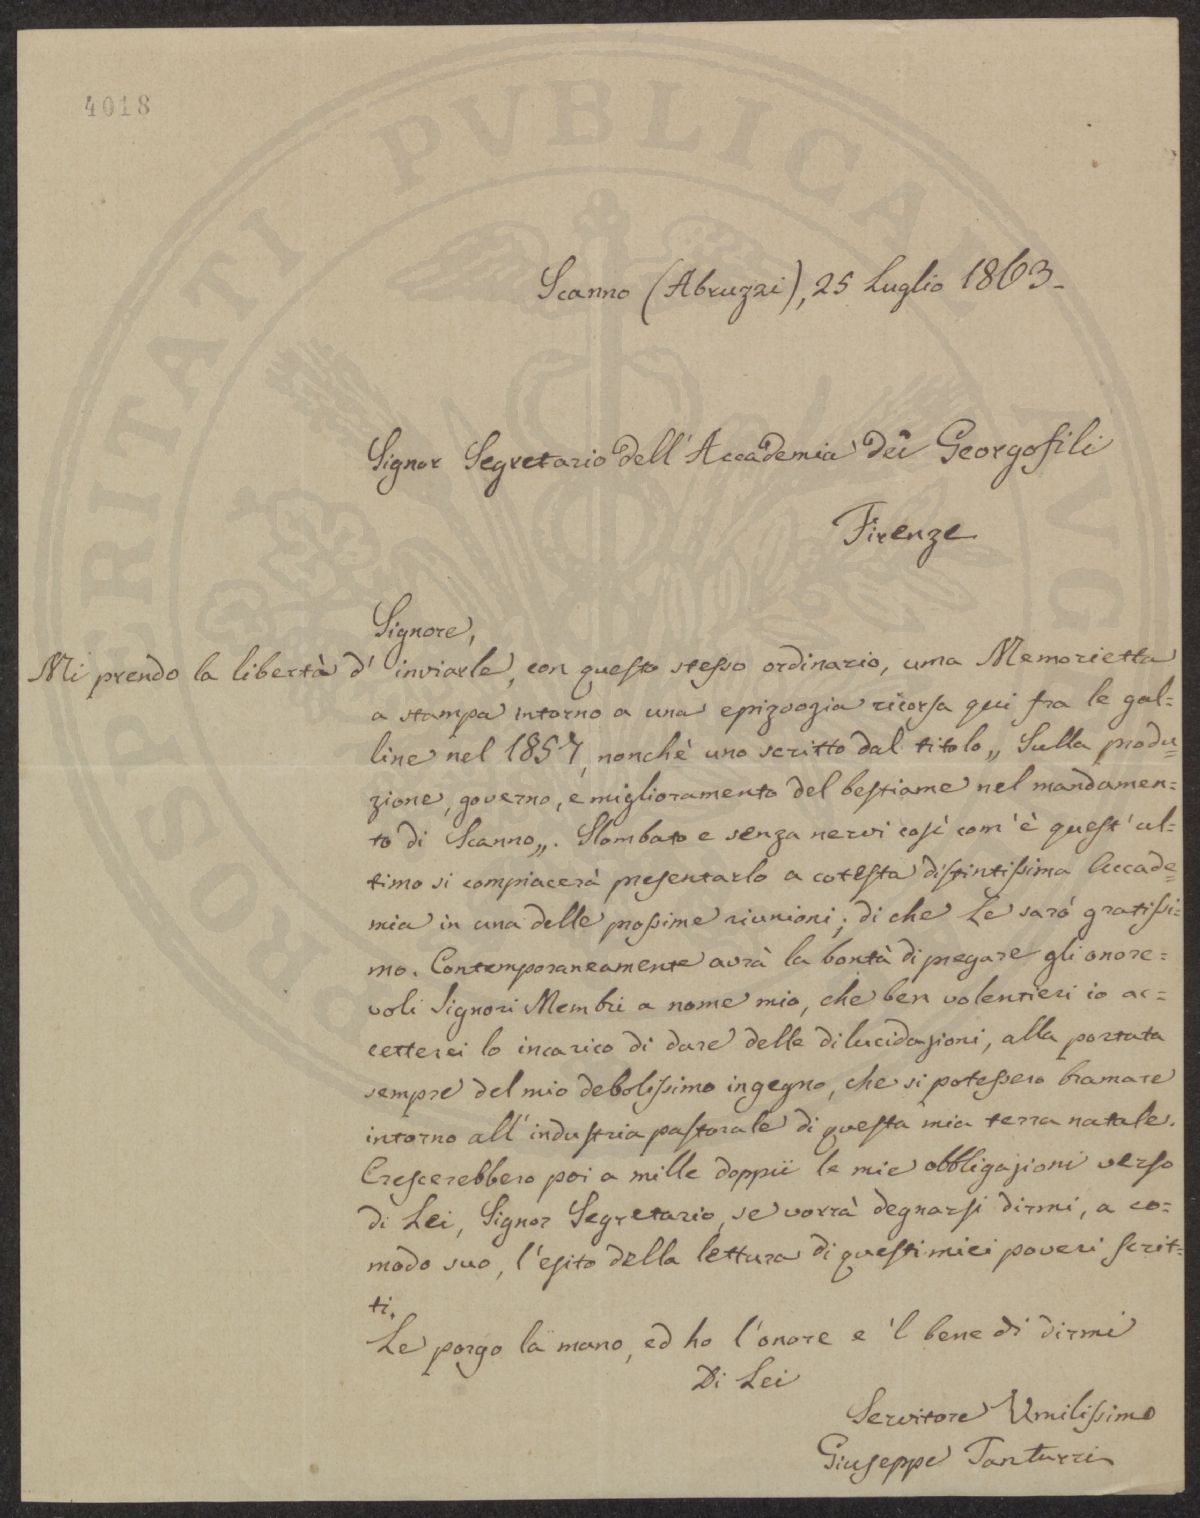 4018
PROSPERITATI PVBLICAE AVG
Scanno (Abruzzi), 25 Luglio 1863-
Signor Segretario dell' Accademia dei Georgofili
Firenze
Signore,
Mi prendo la libertà d' inviarle, con questo stesso ordinario, una Memorietta
a stampa intorno a una epizoozia ricorsa qui fra le gal=
line nel 1857, nonchè uno scritto dal titolo „ Sulla produ=
zione, governo, e miglioramento del bestiame nel mandamen=
to di Scanno„. Slombato e senza nervi così com' è quest' ul=
timo si compiacerà presentarlo a cotesta distintissima Accade=
mia in una delle prossime riunioni; di che Le sarò gratissi=
mo. Contemporaneamente avrà la bontà di pregare gli onore=
voli Signori Membri a nome mio, che ben volentieri io ac=
cetterei lo incarico di dare delle dilucidazioni, alla portata
sempre del mio debolissimo ingegno, che si potessero bramare
intorno all' industria pastorale di questa mia terra natale.
Crescerebbero poi a mille doppii le mie obbligazioni verso
di Lei, Signor Segretario, se vorrà degnarsi dirmi, a co=
modo suo, l'esito della lettura di questi miei poveri scrit=
ti.
Le porgo la mano, ed ho l'onore e 'l bene di dirmi
Di Lei
Servitore Umilissimo
Giuseppe Tanturri